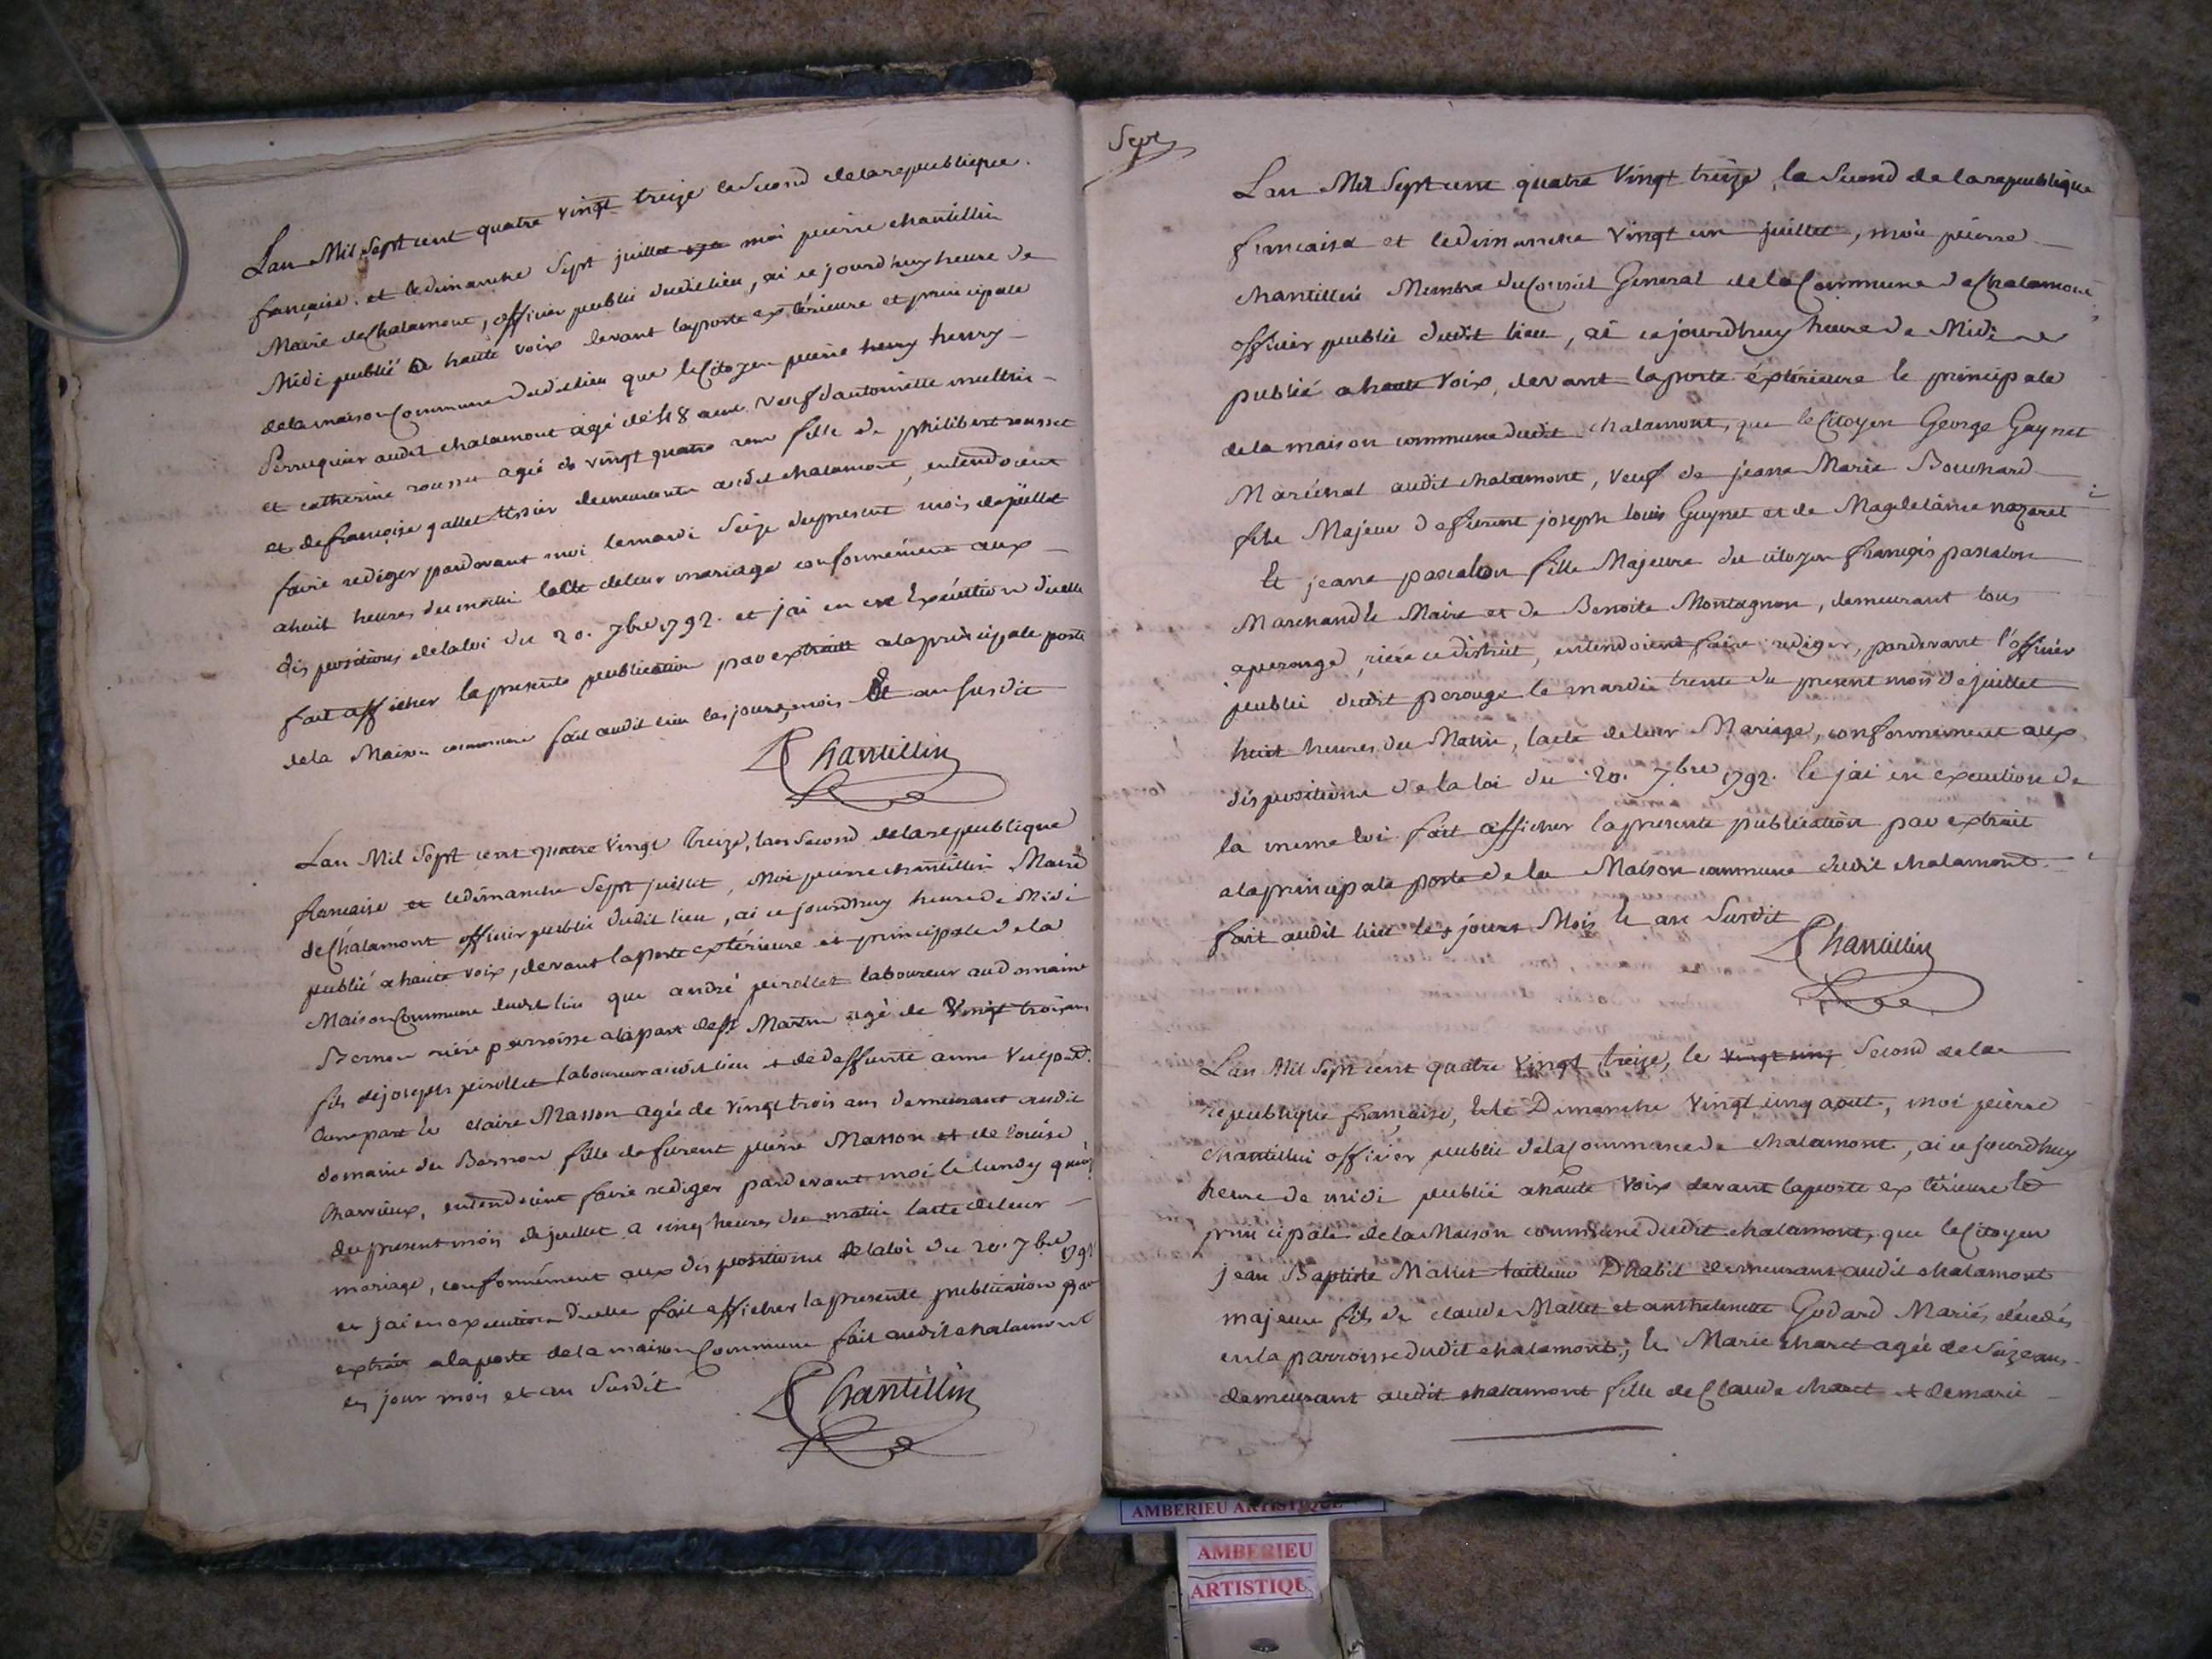 Lan Mil Sept cent quatre vingt treize le Second dela republique
française. et ledimanche Sept juillet moi pierre chantillin
Maire deChalamont, officier public dudit lieu, ai ce jourd'huy heure de
Midi publié a haute voix devant laporte extérieure et principale
dela maison Commune dudit lieu que le Citoyen pierre henry henry
Perruquier audit chalamont agé de 48 ans veuf dantoinette
et catherine rousset agée de vingt quatre ans fille de philibert rousset
et defrançoise gallet tissier demeurante audit chalamont, entendoient
faire rediger pardevant moi lemardi Seize dupresent mois dejuillet
ahuit heures du matin lacte deleur mariage conformément aux
dispositions delaloi du 20. 7bre 1792. et j'ai en execution d'icelle
fait afficher lapresente publication par extrait alaprincipale porte
dela Maison commune fait audit lieu les jours, mois et an susdit
Chantillin
Lan Mil Sept cent quatre vingt treize, Second delarepublique
française et ledimanche Sept juillet, Moi pierre chantillin Maire
deChalamont officier public dudit lieu, ai ce jourdhuy heure de Midi
publié a haute voix, devant laporte extérieure et principale de la
Maison Commune dudit lieu que andré perollet laboureur au domaine
Bernon riere parroisse alapart de St Martin agé de Vingt trois ans
fils dejoseph perollet laboureur audit lieu et de deffunte anne
dune part & claire Masson agée de vingt trois ans demeurant audit
domaine du Bernon fille defurent pierre Masson et de louise
Charvieux, entendoient faire rediger pardevant moi le lundy
dupresent mois dejuillet a cinq heures du matin lacte deleur
mariage, conformément aux dispositions delaloi du 20. 7bre 1792
et jai en execution dicelle fait afficher lapresente publication par
extrait alaporte dela maison Commune fait audit chalamont
les jour mois et an susdit
Chantillin
Sept
Lan Mil Sept cent quatre Vingt treize, le Second de larepublique
francaise et ledimanche Vingt un juillet, moi pierre
chantillin Membre du Conseil General de la Commune deChalamont
officier public dudit lieu, ai ce jourdhuy heure de Midi
publié a haute Voix, devant laporte éxtérieure & principale
dela maison commune dudit chalamont, que le Citoyen George Guynet
Maréchal audit chalamont, Veuf de jeanne Marie Bouchard
fils Majeur defurent joseph louis Guynet et de Magdelaine nazaret
& jeanne pascalon fille Majeure du citoyen françois pascalon
Marchand & Maire et de Benoite Montagnon, demeurant tous
aperouge, riere ce district, entendoient faire rediger, pardevant l'officier
public dudit perouge le mardi trente du present mois dejuillet
huit heures du Matin, lacte deleur Mariage, conformement aux
dispositions de la loi du 20. 7bre 1792. & j'ai en execution de
la meme loi fait afficher lapresente publication par extrait
alaprincipale porte de la Maison commune dudit chalamont.
fait audit lieu les jours Mois & an Susdit
Chantillin
Lan Mil Sept cent quatre Vingt treize, le vingt cinq Second dela
republique française, & le Dimanche Vingt cinq aout, moi pierre
chantillin officier public delaCommune de chalamont, ai ce jourdhuy
heure de midi publié a haute Voix devant laporte exterieure &
principale dela Maison commune dudit chalamont, que leCitoyen
jean Baptiste Mallet tailleur Dhabit demeurant audit chalamont
majeur fils de claude Mallet et anthelmette Godard Mariés décédés
en la parroisse dudit chalamont; & Marie charet agée de Seize ans
demeurant audit chalamont fille deClaude charet et de marie
AMBERIEU ARTISTIQUE
AMBERIEU
ARTISTIQU